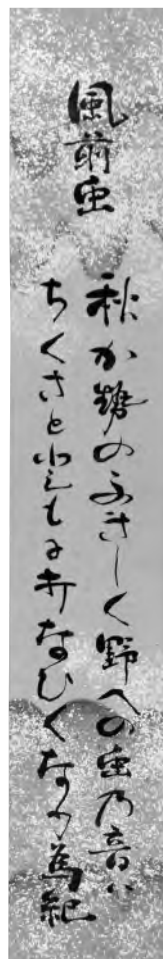 風前虫
秋か勢のふきしく野への虫乃音ハ
ちくさとともに打なひくなり 為紀